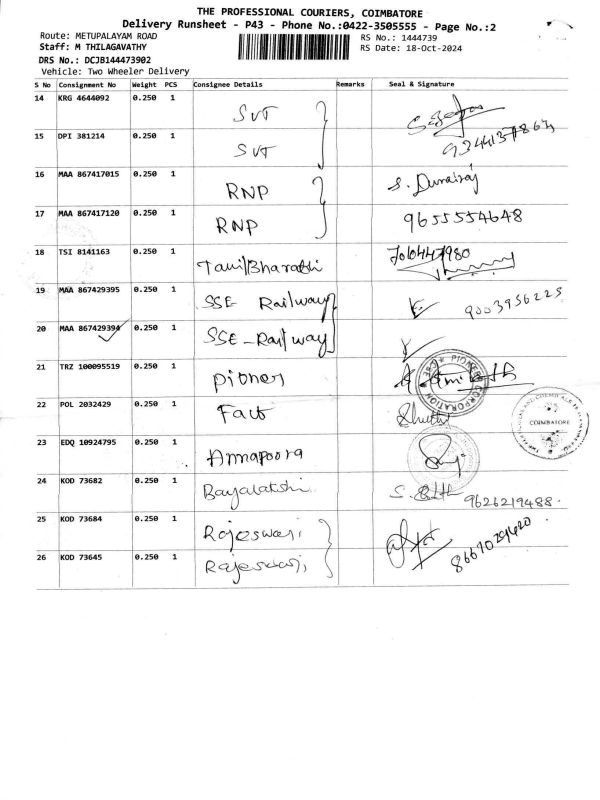 THE PROFESSIONAL COURIERS, COIMBATORE
Delivery Runsheet - P43 - Phone No.:0422-3505555 - Page No.:2
Route: METUPALAYAM ROAD
RS No.: 1444739
Staff: M THILAGAVATHY
RS Date: 18-Oct-2024
DRS No.: DCJB144473902
Vehicle: Two Wheeler Delivery
S No Consignment No Weight PCS Consignee Details Remarks Seal & Signature
14 KRG 4644092 0.250 1 SVT
15 DPI 381214 0.250 1 SVT
16 MAA 867417015 0.250 1 RNP S. Durairaj
17 MAA 867417120 0.250 1 RNP 9655554648
18 TSI 8141163 0.250 1 Tamil Bharathi
19 MAA 867429395 0.250 1 SSE Railway 9003956225
20 MAA 867429394 0.250 1 SSE-Railway
21 TRZ 100095519 0.250 1 Pioner
22 POL 2032429 0.250 1 Fact
COIMBATORE
23 EDQ 10924795 0.250 1 Annapoora
24 KOD 73682 0.250 1 9626219488
25 KOD 73684 0.250 1 Rajeswari
26 KOD 73645 0.250 1 Rajeswari